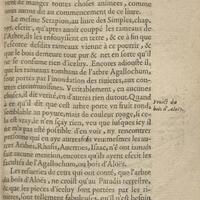 uent de manger toutes choses animées, comme
nous auons dit au commencement de ce liure.
Le mesme Serapion, au liure des Simples, chap.
197. escrit, qu'apres auoir couppé les rameaux de
l'Arbre, ils enfouyssent en terre, & ce à fin que
l'escorce desdits rameaux vienne à ce pourrir; &
que le bois demeure tout pur & net en sorte qu'il
ne se consume rien d'iceluy. Encores adiouste,
que les rameaux tombans de l'arbre Agallochum,
sont portez par l'inondation des riuieres, aux con-
trees circonuoisines. Veritablement, en aucunes
choses, il dit verité, en d'autres rien du tout. Quand
à ce qu'il dit que cest arbre porte vn fruit rond,
semblable au poyure, mais de couleur rouge, si ce-
la est vray, ie n'en sçay rien, veu que iusques icy il
ne m'a pas esté possible d'en voir, ny rencontrer
personne qui m'aye asseuré de l'auoir veu. les au-
teurs Arabes, Rhasis, Auerroes, Isaac, n'en ont iamais
fait aucune mention, encores qu'ils ayent escrit les
facultez de l'Agallochum, ou bois d'Aloës.
Les resueries de ceux qui ont conté, que l'arbre
du bois d'Aloës, ne croist qu'au Paradis terrestre,
& que les pieces d'iceluy sont portées par les ri-
uieres, sont tellement fabuleuses, qu'il n'est besoin
fruict du
bois d'Aloës.